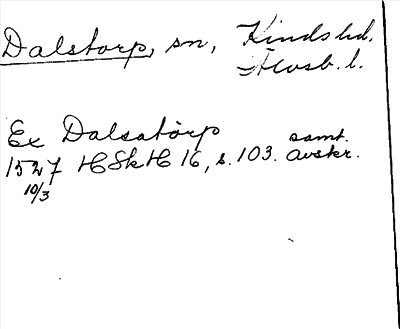 Dalstorp, sn, Kinds hd.
Älvsb. l.
Ex Dalsatörp
1527 HSkH 16, s. 103. samt. avskr.
10/3